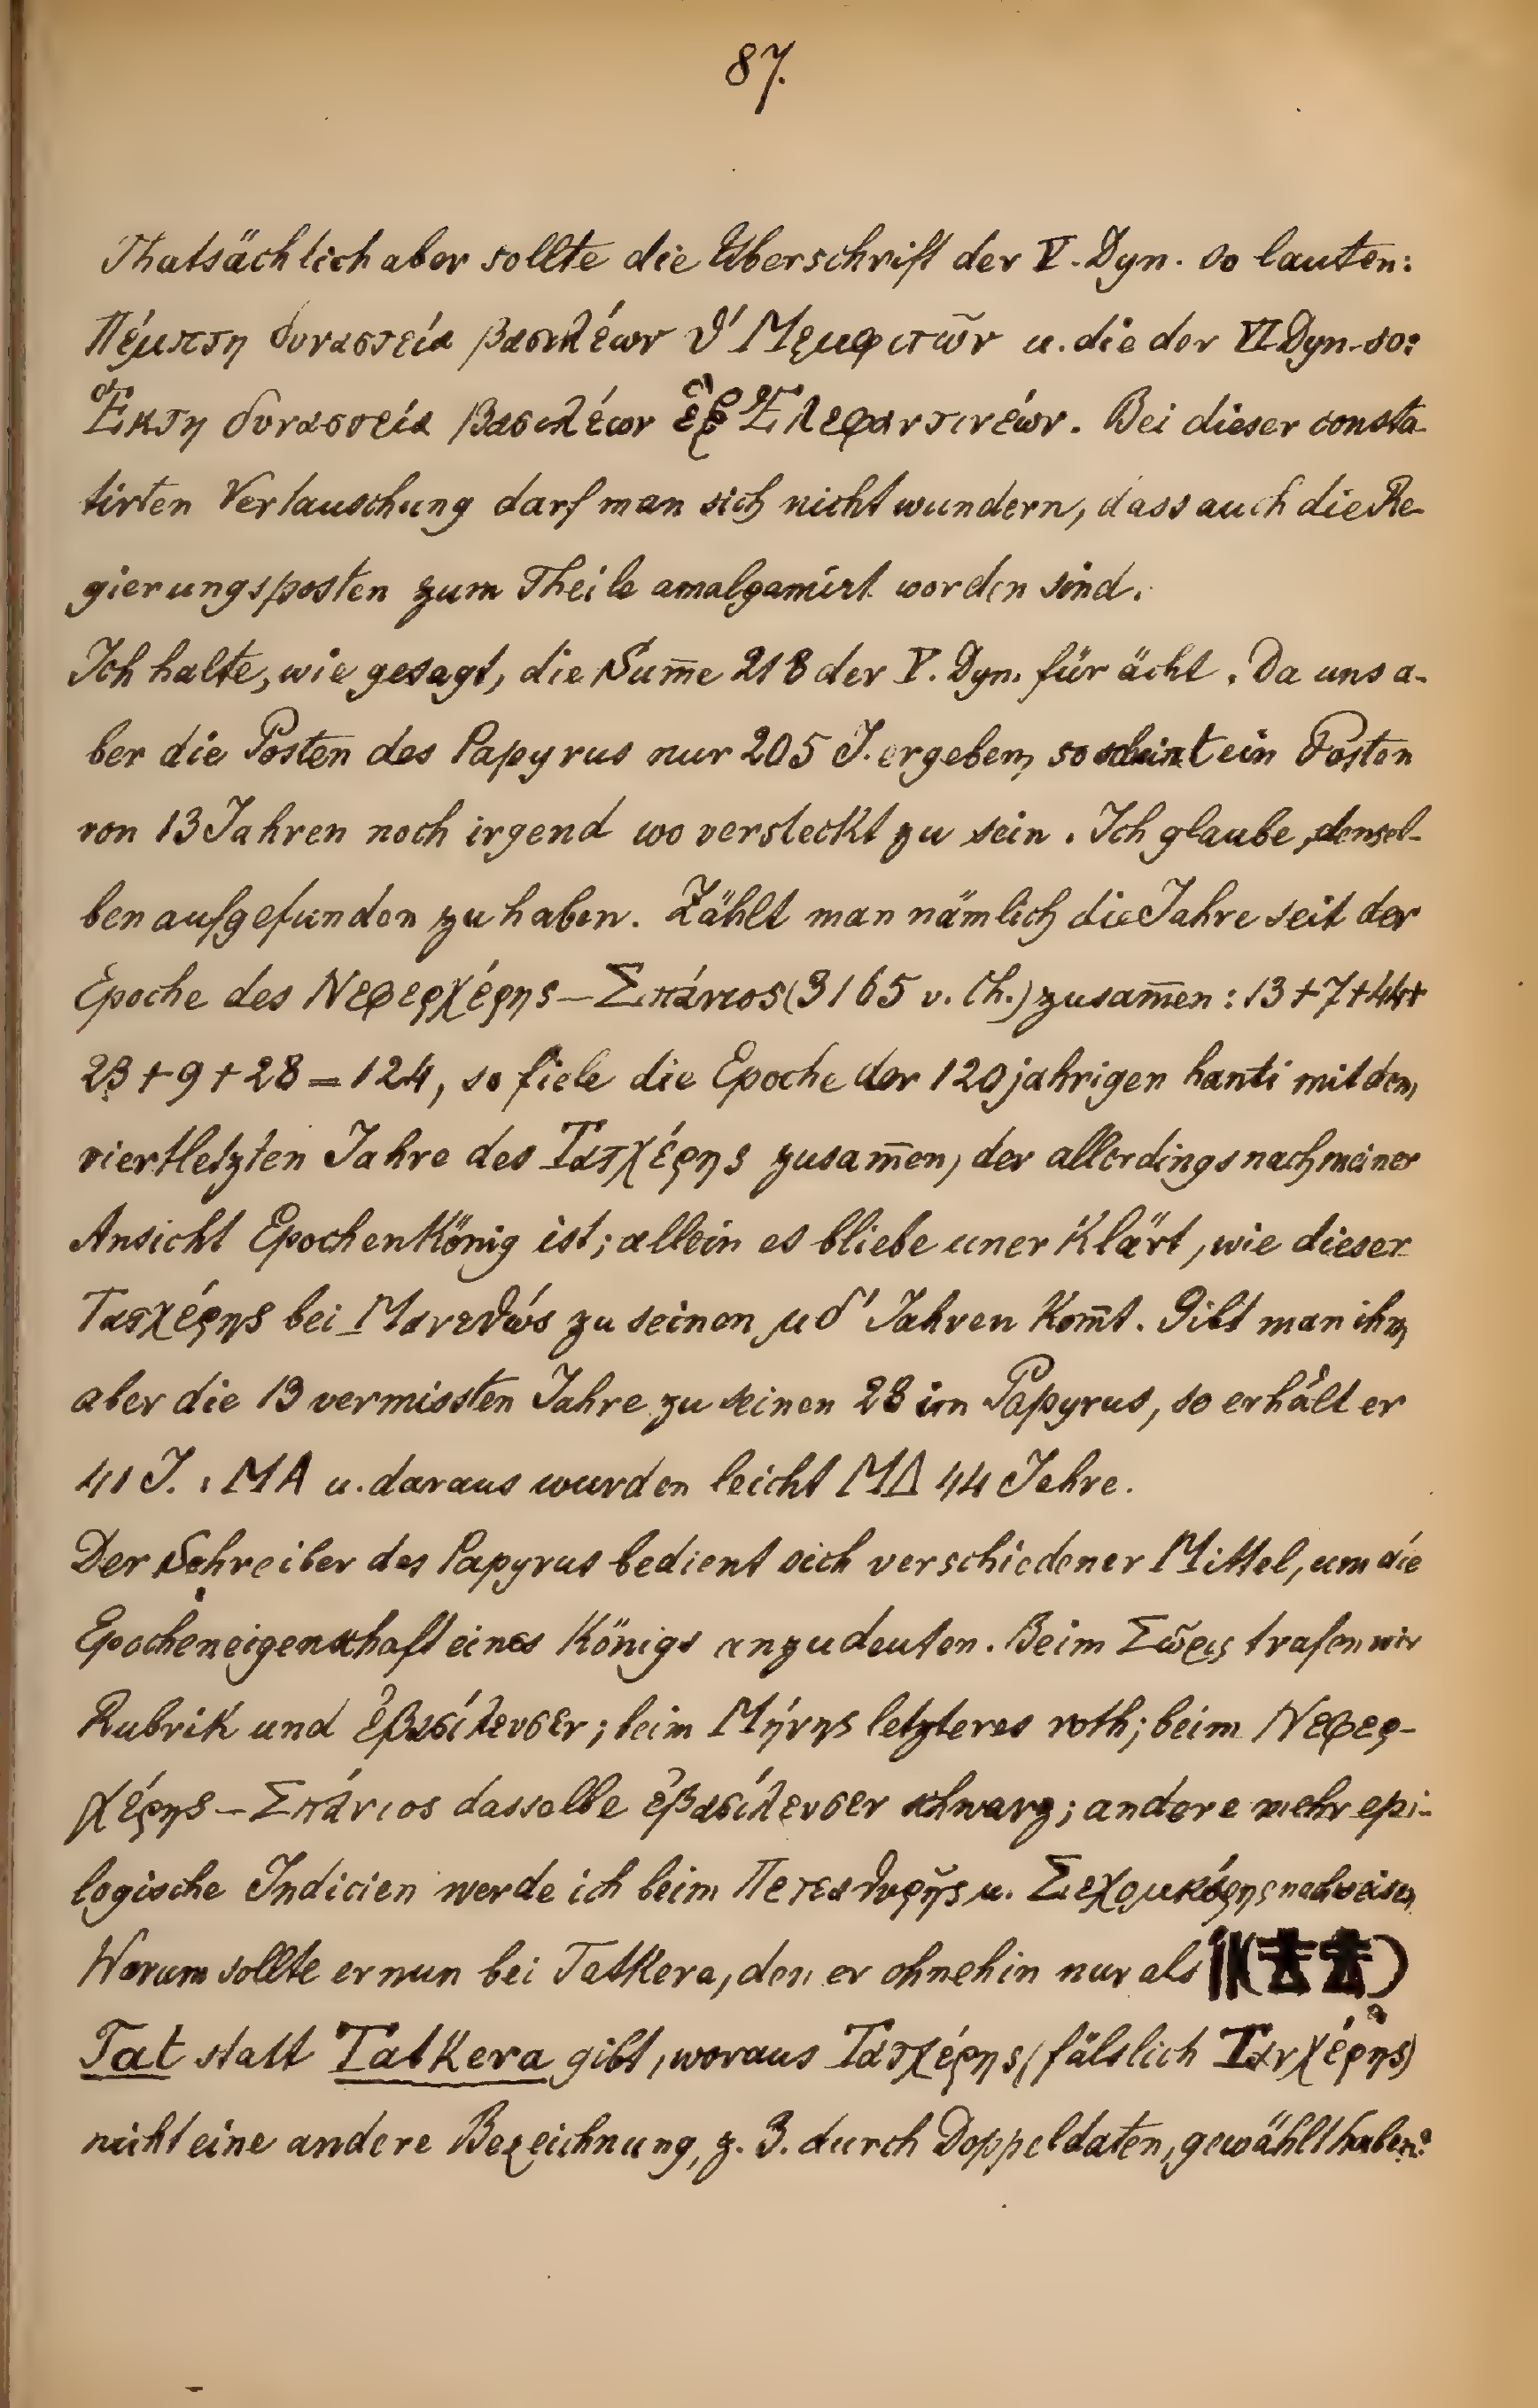 87.
Thatsächlich aber sollte die Überschrift der V. Dyn. so lauten:
Πέμπτη δυναστεία βασιλέων θ' Μεμφιτῶν u. die der VI Dyn. so:
Ἕκτη δυναστεία βασιλέων ἓξ Ἐλεφαντινέων. Bei dieser consta-
tirten Vertauschung darf man sich nicht wundern, dass auch die Re-
gierungsposten zum Theile amalgamirt worden sind.
Ich halte, wie gesagt, die Sum̅e 218 der V. Dyn. für ächt. Da uns a-
ber die Posten des Papyrus nur 205 J. ergeben, so scheint ein Posten
von 13 Jahren noch irgend wo versteckt zu sein. Ich glaube, densel-
ben aufgefunden zu haben. Zählt man nämlich die Jahre seit der
Epoche des Νεφερχέρης – Σπάνιος (3165 v. Ch.) zusam̅en: 13+7+44+
23+9+28=124, so fiele die Epoche der 120jahrigen hanti mit dem
viertletzten Jahre des Τατχέρης zusam̅en, der allerdings nach meiner
Ansicht Epochenkönig ist; allein es bliebe unerklärt, wie dieser
Τατχέρης bei Μανεθώς zu seinen μδ' Jahren kom̅t. Gibt man ihm
aber die 13 vermissten Jahre zu seinen 28 im Papyrus, so erhält er
41 J. : ΜΑ u. daraus wurden leicht ΜΔ 44 Jahre.
Der Schreiber des Papyrus bedient sich verschiedener Mittel, um die
Epocheneigenschaft eines Königs anzudeuten. Beim Σῶρις trafen wir
Rubrik und ἐβασίλευσεν; beim Μήνης letzteres roth; beim Νεφερ-
χέρης – Σπάνιος dasselbe ἐβασίλευσεν schwarz; andere mehr epi-
logische Indicien werde ich beim Πετεαθυρῆς u. Σεχομκέρης nachweisen.
Warum sollte er nun bei Tatkera, den er ohnehin nur als
Tat statt Tatkera gibt, woraus Τατχέρης (fälslich Τανχέρης)
nicht eine andere Bezeichnung, z. B. durch Doppeldaten, gewählt haben?